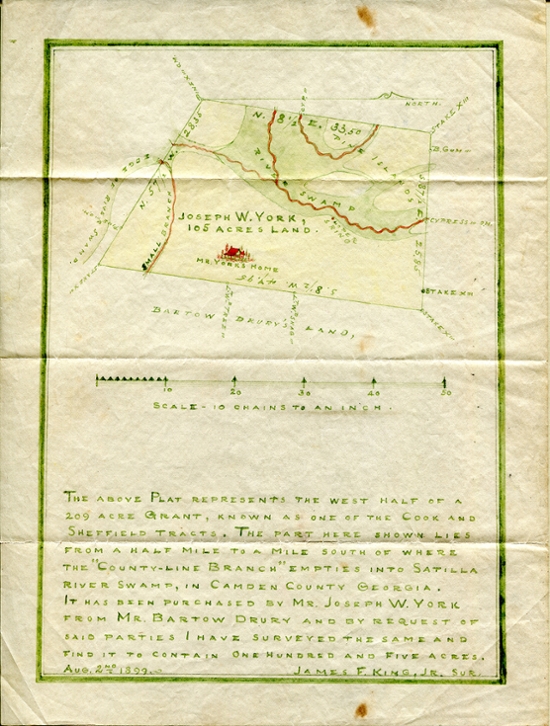 NORTH.
STAKE XIII
N. 8½ E. 33,50
PINE ISLANDS
B. GUM
RIVER SWAMP
CYPRESS
JOSEPH W. YORK,
105 ACRES LAND.
SMALL BRANCH
MR. YORKS HOME
STAKE XII
S. 8½ W. 47,95
BARTOW DRURY'S LAND,
10 20 30 40 50
SCALE - 10 CHAINS TO AN INCH.
THE ABOVE PLAT REPRESENTS THE WEST HALF OF A
209 ACRE GRANT, KNOWN AS ONE OF THE COOK AND
SHEFFIELD TRACTS. THE PART HERE SHOWN LIES
FROM A HALF MILE TO A MILE SOUTH OF WHERE
THE "COUNTY-LINE BRANCH" EMPTIES INTO SATILLA
RIVER SWAMP, IN CAMDEN COUNTY GEORGIA.
IT HAS BEEN PURCHASED BY MR. JOSEPH W. YORK
FROM MR. BARTOW DRURY" AND BY REQUEST OF
SAID PARTIES I HAVE SURVEYED THE SAME AND
FIND IT TO CONTAIN ONE HUNDRED AND FIVE ACRES.
AUG. 2ND 1899. JAMES F. KING, JR. SUR.